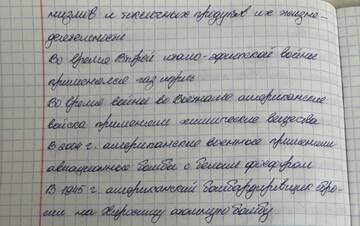 низмов и токсичных продуктов их жизне-
деятельности
Во время Второй итало-эфиопской войны
применялся газ иприт
Во время войны во Вьетнаме американские
войска применяли химические вещества
В 2004 г. американские военные применили
авиационные бомбы с белым фосфором
В 1945 г американский бомбардировщик сбро-
сил на Хиросиму атомную бомбу